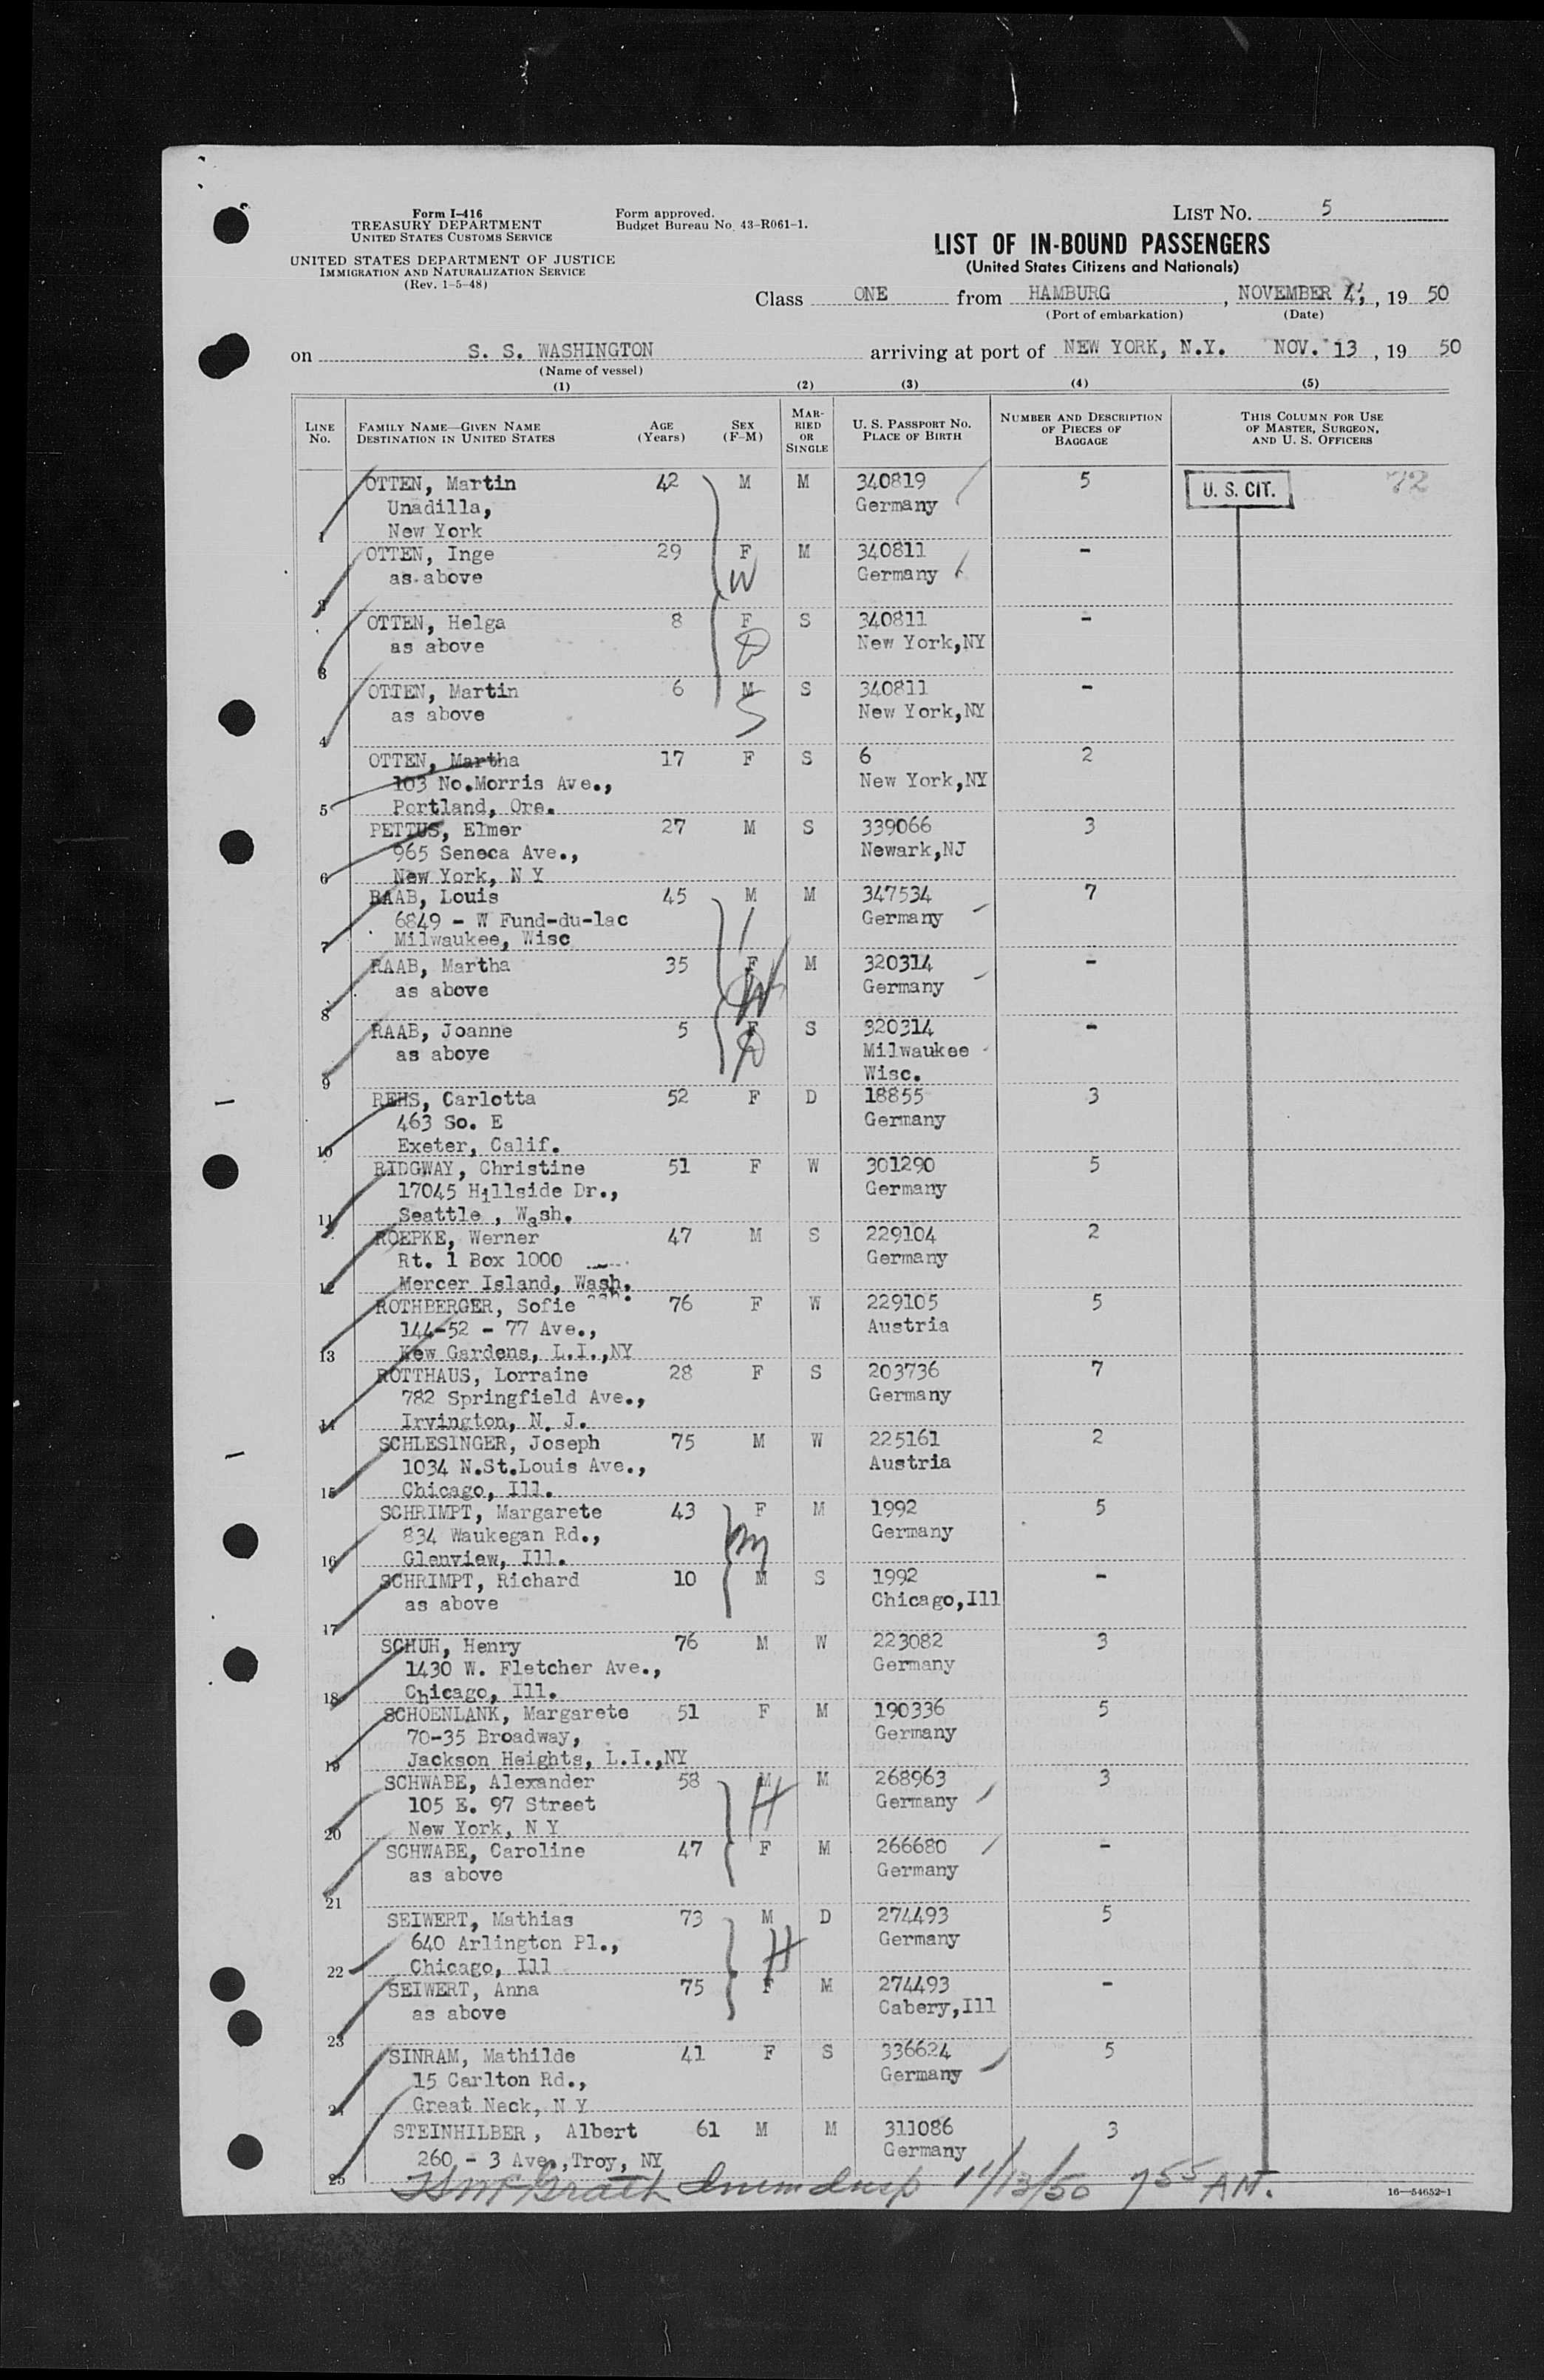 Form I-416
TREASURY DEPARTMENT
UNITED STATES CUSTOMS SERVICE
UNITED STATES DEPARTMENT OF JUSTICE
IMMIGRATION AND NATURALIZATION SERVICE
(Rev. 1-5-48)
Form approved.
Budget Bureau No. 43-R061-1.
LIST No. 5
LIST OF IN-BOUND PASSENGERS
(United States Citizens and Nationals)
Class ONE from HAMBURG, NOVEMBER 4, 19 50
(Port of embarkation) (Date)
on S. S. WASHINGTON arriving at port of NEW YORK, N.Y. NOV. 13, 19 50
(Name of vessel)
(1) (2) (3) (4) (5)
LINE No. FAMILY NAME—GIVEN NAME DESTINATION IN UNITED STATES AGE (Years) SEX (F-M) MARRIED OR SINGLE U. S. PASSPORT No. PLACE OF BIRTH NUMBER AND DESCRIPTION OF PIECES OF BAGGAGE THIS COLUMN FOR USE OF MASTER, SURGEON, AND U. S. OFFICERS
OTTEN, Martin 42 M M 340819 5 U. S. CIT. 72
Unadilla, Germany
1 New York
OTTEN, Inge 29 F M 340811 -
as above W Germany
2
OTTEN, Helga 8 F S 340811 -
as above D New York,NY
3
OTTEN, Martin 6 M S 340811 -
as above S New York,NY
4
OTTEN, Martha 17 F S 6 2
103 No.Morris Ave., New York,NY
5 Portland, Ore.
PETTUS, Elmer 27 M S 339066 3
965 Seneca Ave., Newark,NJ
6 New York, N Y
RAAB, Louis 45 M M 347534 7
6849 - W Fund-du-lac Germany
7 Milwaukee, Wisc
RAAB, Martha 35 F M 320314 -
as above W Germany
8
RAAB, Joanne 5 F S 320314 -
as above D Milwaukee
9 Wisc.
REHS, Carlotta 52 F D 18855 3
463 So. E Germany
10 Exeter, Calif.
RIDGWAY, Christine 51 F W 301290 5
17045 Hillside Dr., Germany
11 Seattle , Wash.
ROEPKE, Werner 47 M S 229104 2
Rt. 1 Box 1000 Germany
12 Mercer Island, Wash.
ROTHBERGER, Sofie 76 F W 229105 5
144-52 - 77 Ave., Austria
13 Kew Gardens, L.I.,NY
ROTTHAUS, Lorraine 28 F S 203736 7
782 Springfield Ave., Germany
14 Irvington, N. J.
SCHLESINGER, Joseph 75 M W 225161 2
1034 N.St.Louis Ave., Austria
15 Chicago, Ill.
SCHRIMPT, Margarete 43 F M 1992 5
834 Waukegan Rd., M Germany
16 Glenview, Ill.
SCHRIMPT, Richard 10 M S 1992 -
as above Chicago,Ill
17
SCHUH, Henry 76 M W 223082 3
1430 W. Fletcher Ave., Germany
18 Chicago, Ill.
SCHOENLANK, Margarete 51 F M 190336 5
70-35 Broadway, Germany
19 Jackson Heights, L.I.,NY
SCHWABE, Alexander 58 M M 268963 3
105 E. 97 Street H Germany
20 New York, N Y
SCHWABE, Caroline 47 F M 266680 -
as above Germany
21
SEIWERT, Mathias 73 M D 274493 5
640 Arlington Pl., H Germany
22 Chicago, Ill
SEIWERT, Anna 75 F M 274493 -
as above Cabery,Ill
23
SINRAM, Mathilde 41 F S 336624 5
15 Carlton Rd., Germany
24 Great Neck, N Y
STEINHILBER, Albert 61 M M 311086 3
260 - 3 Ave.,Troy, NY Germany
25
McGrath Imm Insp 11/13/50 7 55 AM.
16—54652-1